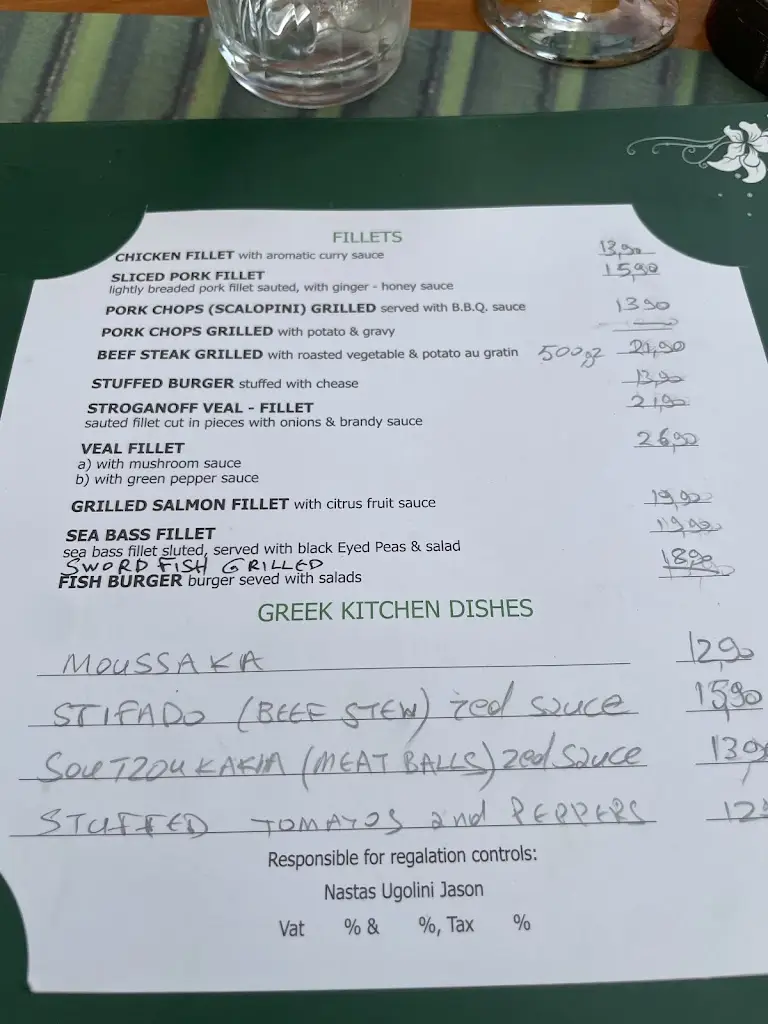 FILLETS
CHICKEN FILLET with aromatic curry sauce 13,90
SLICED PORK FILLET 15,90
lightly breaded pork fillet sauted, with ginger - honey sauce
PORK CHOPS (SCALOPINI) GRILLED served with B.B.Q. sauce 13 90
PORK CHOPS GRILLED with potato & gravy
BEEF STEAK GRILLED with roasted vegetable & potato au gratin 500gz 21,90
STUFFED BURGER stuffed with chease 13,90
STROGANOFF VEAL - FILLET 21,90
sauted fillet cut in pieces with onions & brandy sauce
VEAL FILLET 26,90
a) with mushroom sauce
b) with green pepper sauce
GRILLED SALMON FILLET with citrus fruit sauce 19,90
SEA BASS FILLET 19,90
sea bass fillet sluted, served with black Eyed Peas & salad
SWORD FISH GRILLED 18,90
FISH BURGER burger seved with salads
GREEK KITCHEN DISHES
MOUSSAKA 12,90
STIFADO (BEEF STEW) red sauce 15,90
SOUTZOUKAKIA (MEAT BALLS) red sauce 13,90
STUFFED TOMATOS and PEPPERS 12
Responsible for regalation controls:
Nastas Ugolini Jason
Vat % & %, Tax %